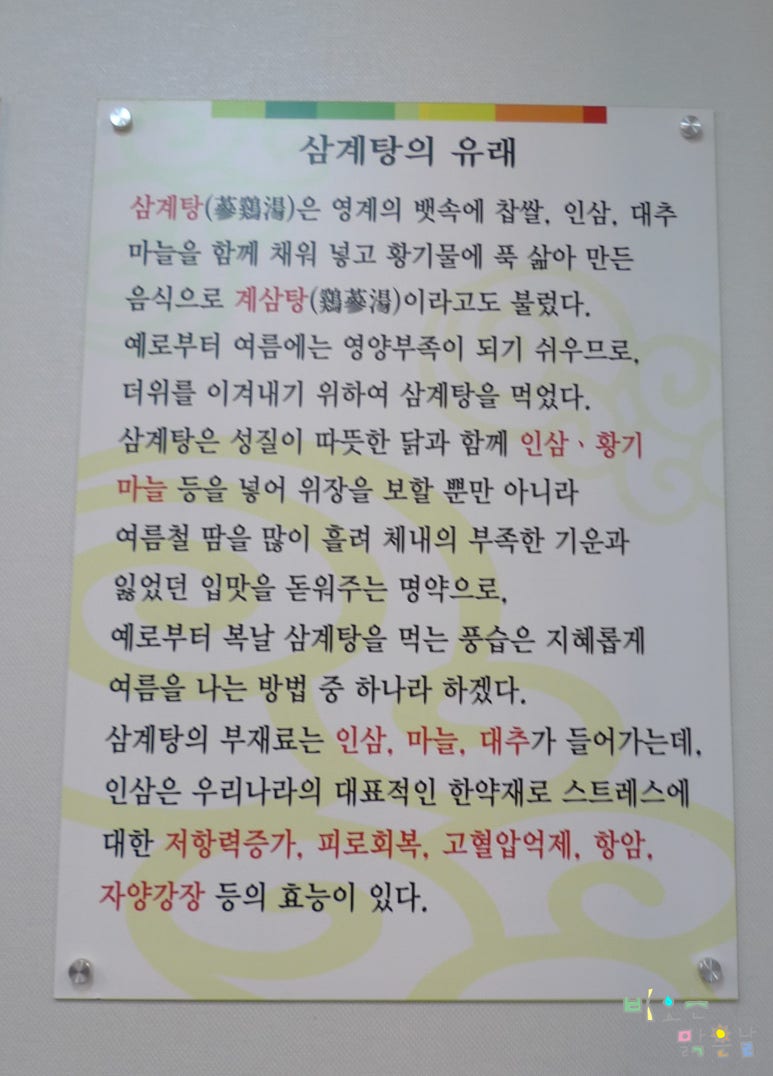 삼계탕의 유래
삼계탕(蔘鷄湯)은 영계의 뱃속에 찹쌀, 인삼, 대추
마늘을 함께 채워 넣고 황기물에 푹 삶아 만든
음식으로 계삼탕(鷄蔘湯)이라고도 불렀다.
예로부터 여름에는 영양부족이 되기 쉬우므로,
더위를 이겨내기 위하여 삼계탕을 먹었다.
삼계탕은 성질이 따뜻한 닭과 함께 인삼、황기
마늘 등을 넣어 위장을 보할 뿐만 아니라
여름철 땀을 많이 흘려 체내의 부족한 기운과
잃었던 입맛을 돋워주는 명약으로,
예로부터 복날 삼계탕을 먹는 풍습은 지혜롭게
여름을 나는 방법 중 하나라 하겠다.
삼계탕의 부재료는 인삼, 마늘, 대추가 들어가는데,
인삼은 우리나라의 대표적인 한약재로 스트레스에
대한 저항력증가, 피로회복, 고혈압억제, 항암,
자양강장 등의 효능이 있다.
비오는
맑은날